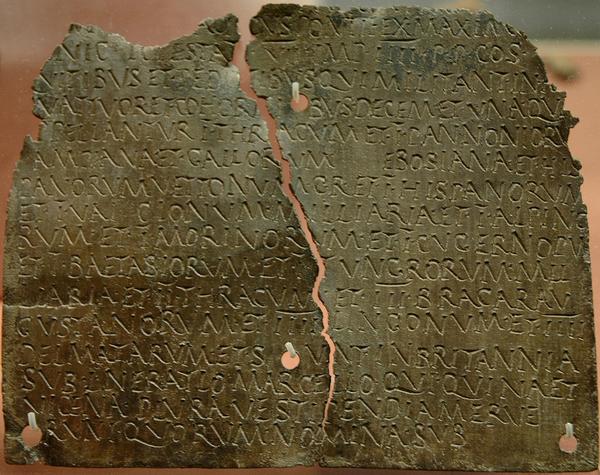 PONTIFEX MAXIMV
NIC POTESTA IMP IIII COS
VITIBVS ET PEDITIBVS QVI MILITANT IN
VATTVOR ET COHORTIBVS DECEM ET VNA QV
PELLANTVR I THRACVM ET I PANNONIORV
AMPIANA ET GALLORVM SEBOSIANA ET HIS
PANORVM VETTONVM C R ET I HISPANORVM
ET I VANGIONVM MILLIARIA ET I ALPINO
RVM ET I MORINORVM ET I CVGERNORV
ET I BAETASIORVM ET I TVNGRORVM MIL
LIARIA ET II THRACVM ET III BRACARAV
GVSTANORVM ET III LINGONVM ET IIII
DELMATARVM ET SVNT IN BRITANNIA
SVB L NERATIO MARCELLO QVI QVINA ET
VICENA PLVRAVE STIPENDIA MERVE
RVNT QVORVM NOMINA SVB